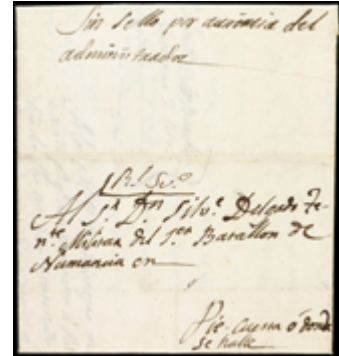 Sin sello por ausencia del
administrador
Rl. Svo.
Al Sr. Dn. Silve. Delgado Te-
nte. Militar del 1er. Batallon de
Numancia en
Pie-cuesta ó donde
se halle